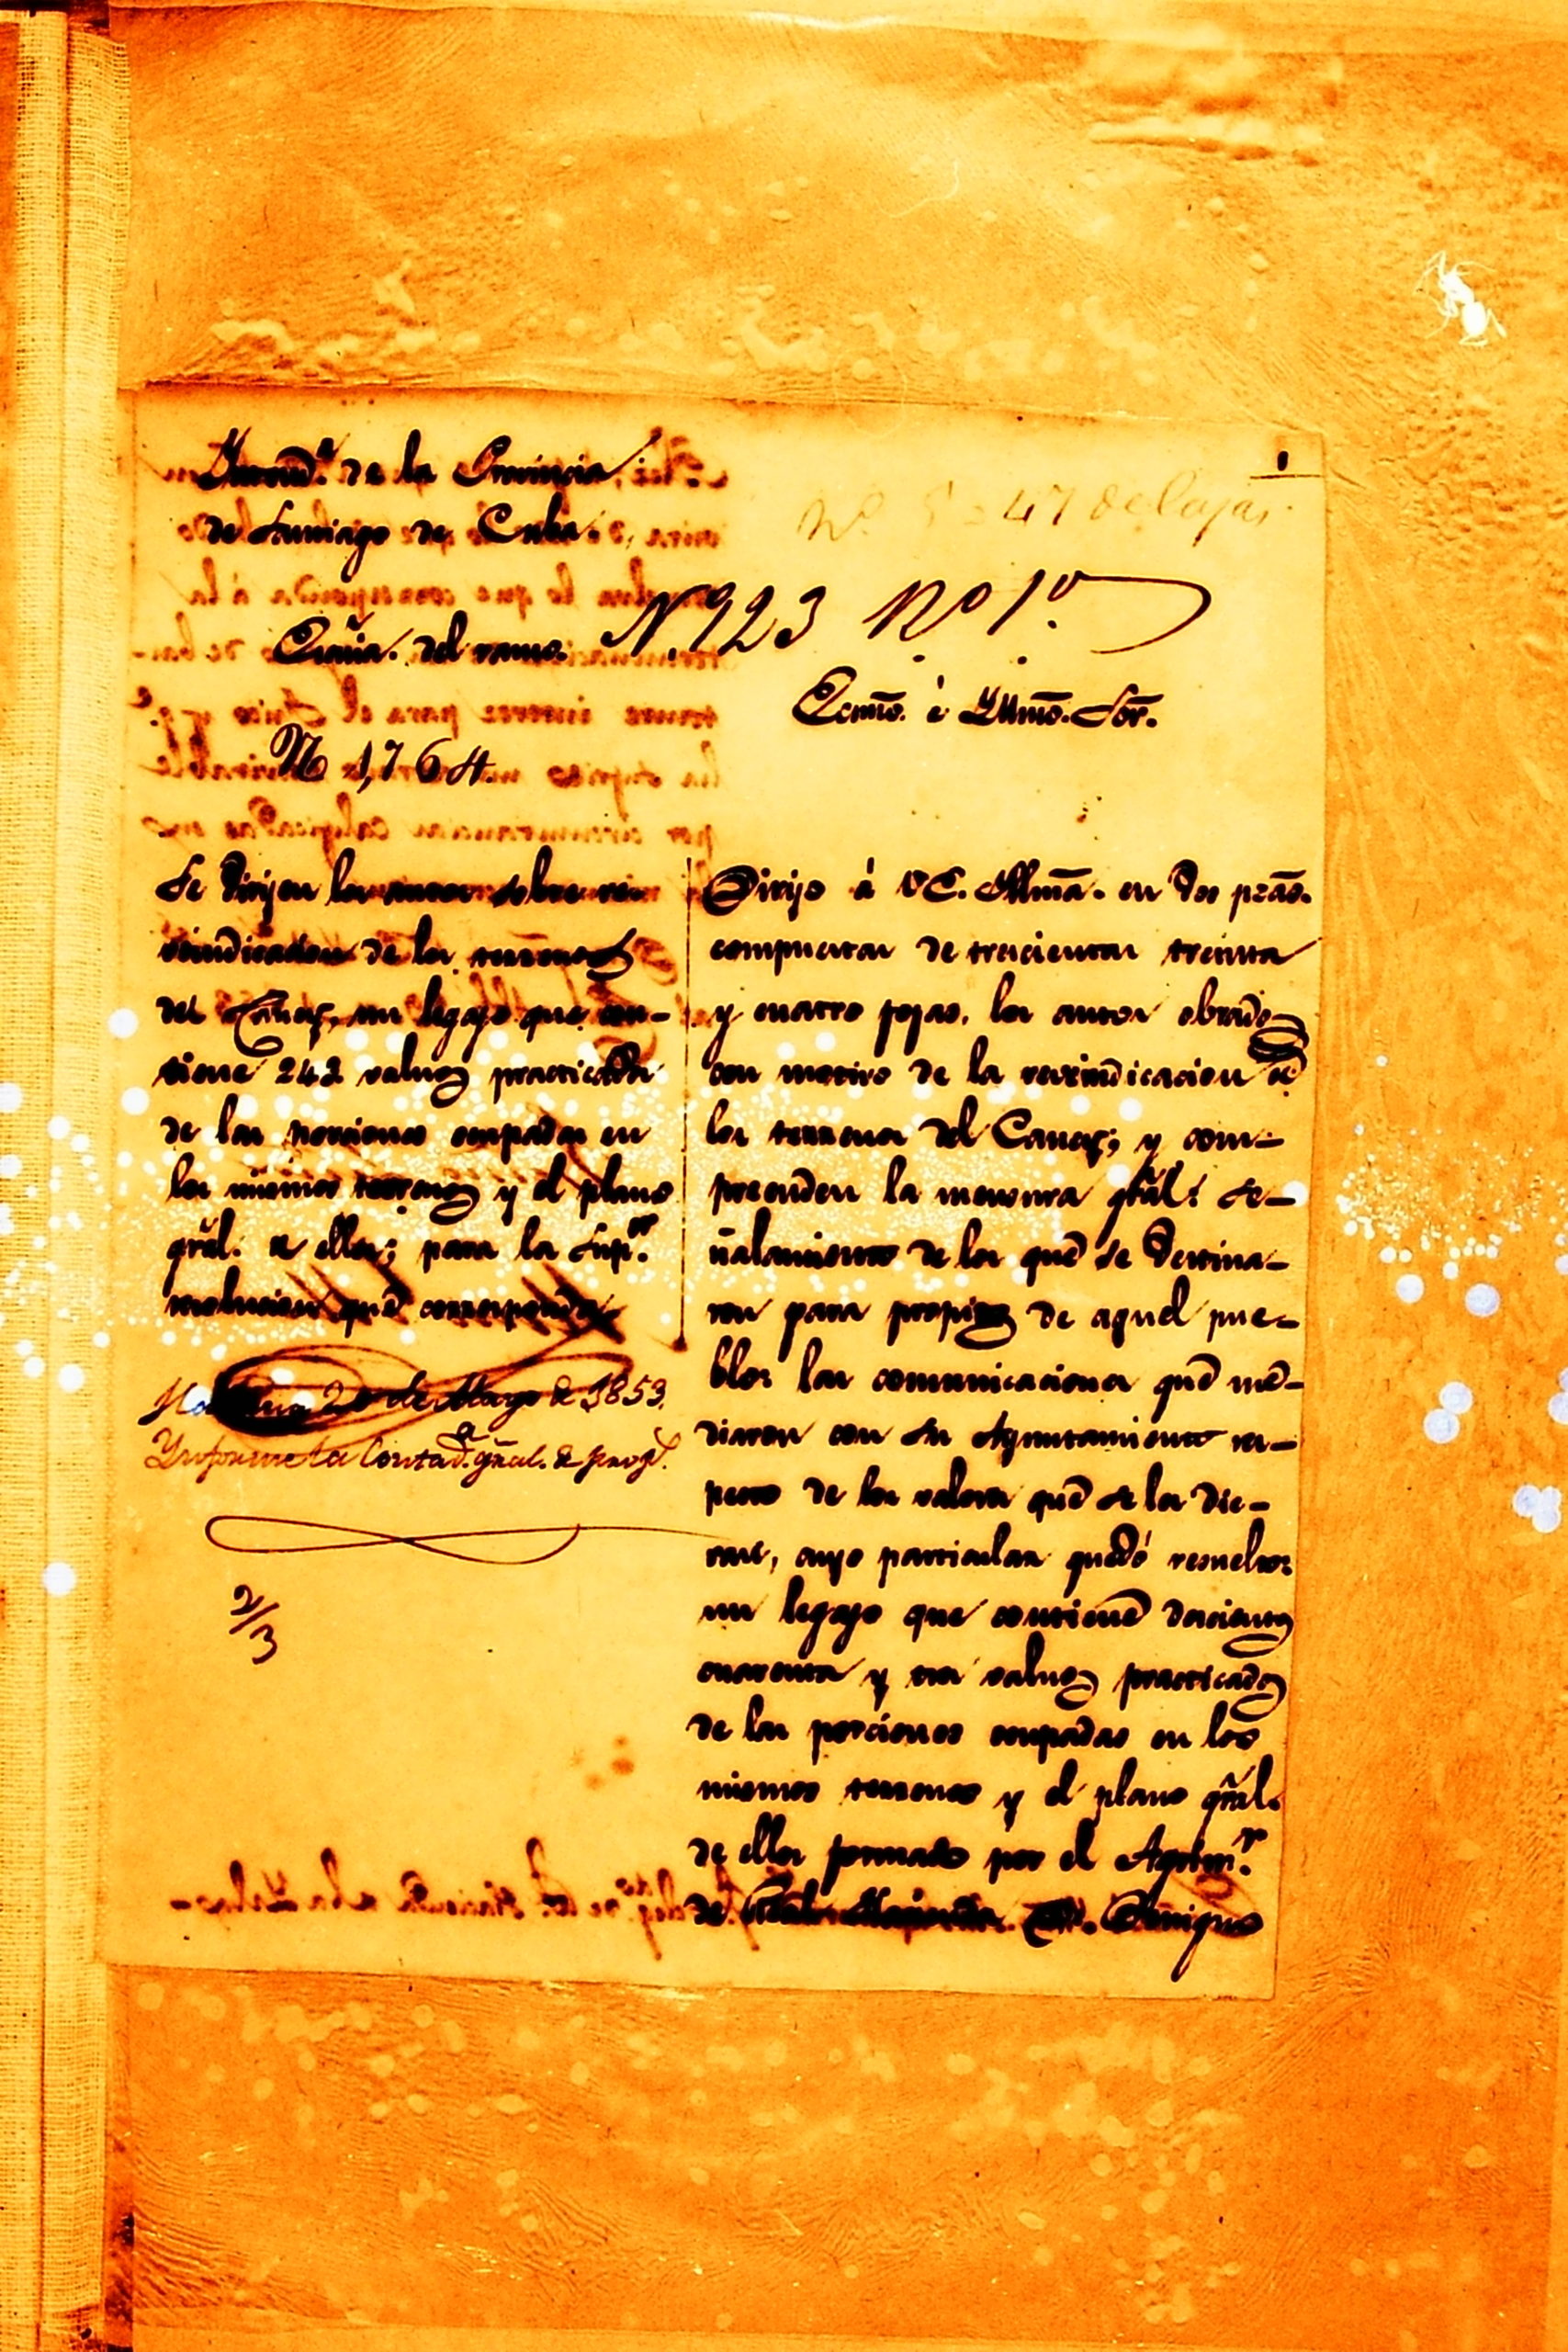 Yntend.ª de la Provincia
de Santiago de Cuba.
1
47 de lajas
N. 923 Nº 1º.
del ramo.
Ecsmō. é Yllmō. Sōr.
N 1,764
Se dirijen los autos sobre rei-
vindicacion de los terrenos
del Caney, un legajo que con-
tiene 242 valuos practicados
de las porciones ocupadas en
los mismos terrenos y el plano
grāl. de ellos; para la Sup.ºʳ
resolucion que corresponda.
20 de Mayo de 1853.
Ynforme la Contad.ª gral. de prop.
2/3
Dirijo á V.E. Yllmā. en dos pzās.
compuestas de trescientas treinta
y cuatro fojas, los autos obrados
con motivo de la reivindicacion de
los terrenos del Caney; y com-
preenden la mensura grāl: se-
ñalamiento de los que se destina-
ron para propios de aquel pue-
blo: las comunicaciones que me-
diaron con su Ayuntamiento res-
pecto de los valores que se les die-
ron, cuyo particular quedó resuelto:
un legajo que contiene doscientos
cuarenta y tres valuos practicados
de las porciones ocupadas en los
mismos terrenos y el plano grāl.
de ellos formado por el Agrim.ʳ
de Real Hacienda D. Enrique